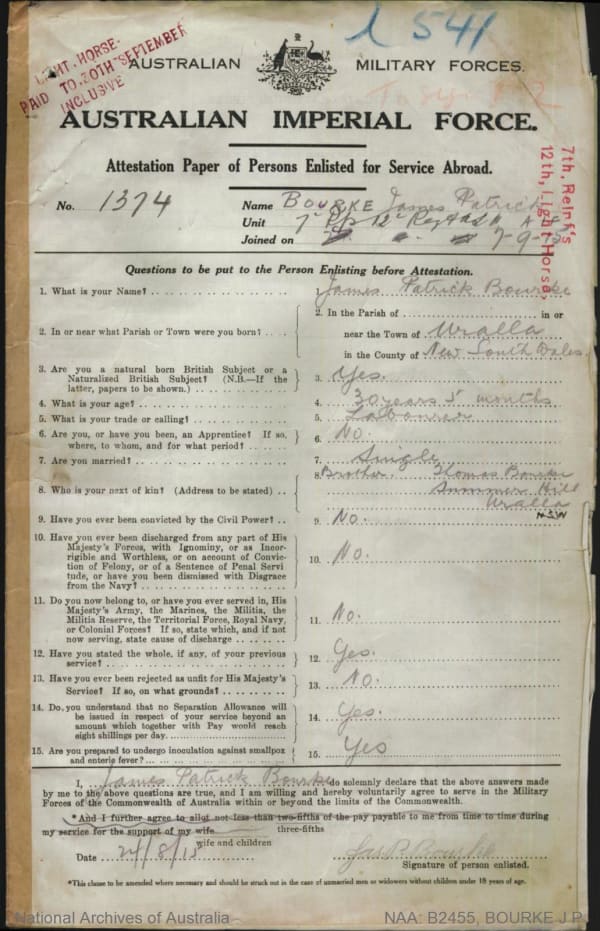 1541
LIGHT HORSE.
PAID TO 30TH SEPTEMBER
INCLUSIVE
AUSTRALIAN MILITARY FORCES.
AUSTRALIAN IMPERIAL FORCE.
Attestation Paper of Persons Enlisted for Service Abroad.
7th, Reinf's
12th, Light Horse,
No. 1374
Name BOURKE James Patrick
Unit 7 12 Reg
Joined on 7-9-15
Questions to be put to the Person Enlisting before Attestation.
1. What is your Name? James Patrick Bourke
2. In or near what Parish or Town were you born?
2. In the Parish of in or
near the Town of Uralla
in the County of New South Wales
3. Are you a natural born British Subject or a
Naturalized British Subject? (N.B.—If the
latter, papers to be shown.) 3. Yes.
4. What is your age? 4. 30 years 5 months
5. What is your trade or calling? 5. Labourer
6. Are you, or have you been, an Apprentice? If so,
where, to whom, and for what period? 6. No.
7. Are you married? 7. Single
8. Who is your next of kin? (Address to be stated)
8. Brother. Thomas Bourke
Summer Hill
Uralla
NSW
9. Have you ever been convicted by the Civil Power? 9. No.
10. Have you ever been discharged from any part of His
Majesty's Forces, with Ignominy, or as Incor-
rigible and Worthless, or on account of Convic-
tion of Felony, or of a Sentence of Penal Servi
tude, or have you been dismissed with Disgrace
from the Navy? 10. No.
11. Do you now belong to, or have you ever served in, His
Majesty's Army, the Marines, the Militia, the
Militia Reserve, the Territorial Force, Royal Navy,
or Colonial Forces? If so, state which, and if not
now serving, state cause of discharge 11. No.
12. Have you stated the whole, if any, of your previous
service? 12. Yes.
13. Have you ever been rejected as unfit for His Majesty's
Service? If so, on what grounds? 13. No.
14. Do you understand that no Separation Allowance will
be issued in respect of your service beyond an
amount which together with Pay would reach
eight shillings per day. 14. Yes.
15. Are you prepared to undergo inoculation against smallpox
and enteric fever? 15. Yes
I, James Patrick Bourke do solemnly declare that the above answers made
by me to the above questions are true, and I am willing and hereby voluntarily agree to serve in the Military
Forces of the Commonwealth of Australia within or beyond the limits of the Commonwealth.
*And I further agree to allot not less than two-fifths of the pay payable to me from time to time during
three-fifths
my service for the support of my wife
wife and children
Date 24/8/15 Jas P Bourke
Signature of person enlisted.
*This clause to be amended where necessary and should be struck out in the case of unmarried men or widowers without children under 18 years of age.
National Archives of Australia NAA: B2455, BOURKE J P